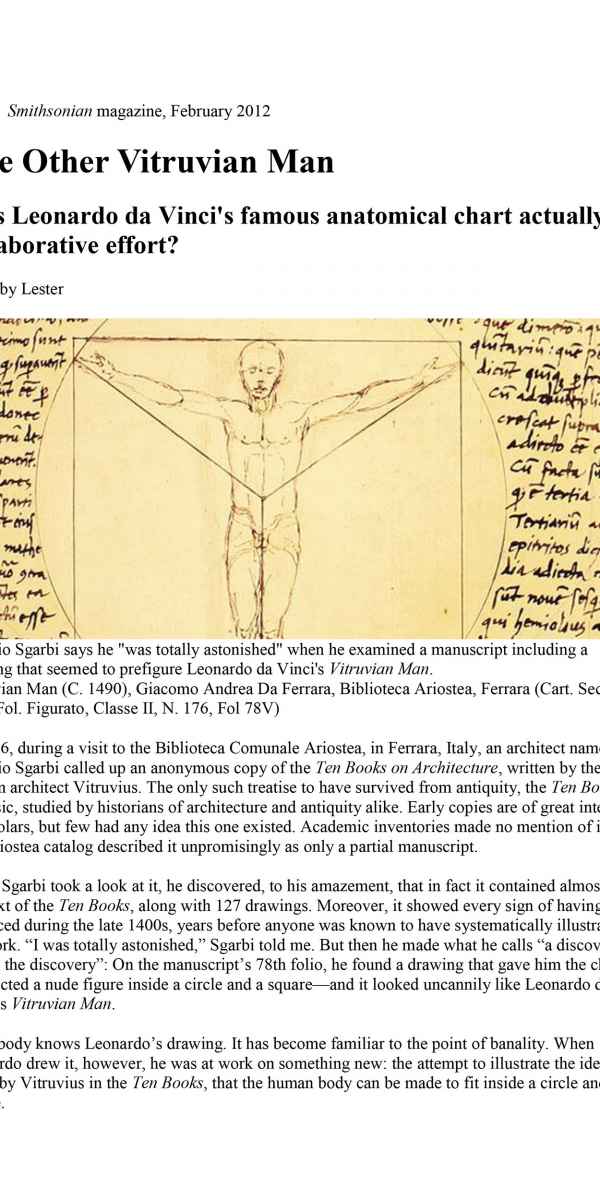 Smithsonian magazine, February 2012
e Other Vitruvian Man
s Leonardo da Vinci's famous anatomical chart actually
aborative effort?
by Lester
donec
crescat supra
adiecto
facta
tertia
epitritos
adiecta
io Sgarbi says he "was totally astonished" when he examined a manuscript including a
ng that seemed to prefigure Leonardo da Vinci's Vitruvian Man.
ian Man (C. 1490), Giacomo Andrea Da Ferrara, Biblioteca Ariostea, Ferrara (Cart. Sec
Fol. Figurato, Classe II, N. 176, Fol 78V)
6, during a visit to the Biblioteca Comunale Ariostea, in Ferrara, Italy, an architect nam
io Sgarbi called up an anonymous copy of the Ten Books on Architecture, written by the
n architect Vitruvius. The only such treatise to have survived from antiquity, the Ten Bo
sic, studied by historians of architecture and antiquity alike. Early copies are of great inte
olars, but few had any idea this one existed. Academic inventories made no mention of i
iostea catalog described it unpromisingly as only a partial manuscript.
Sgarbi took a look at it, he discovered, to his amazement, that in fact it contained almos
xt of the Ten Books, along with 127 drawings. Moreover, it showed every sign of having
ced during the late 1400s, years before anyone was known to have systematically illustra
ork. “I was totally astonished,” Sgarbi told me. But then he made what he calls “a discov
the discovery”: On the manuscript’s 78th folio, he found a drawing that gave him the ch
cted a nude figure inside a circle and a square—and it looked uncannily like Leonardo d
s Vitruvian Man.
body knows Leonardo’s drawing. It has become familiar to the point of banality. When
rdo drew it, however, he was at work on something new: the attempt to illustrate the ide
by Vitruvius in the Ten Books, that the human body can be made to fit inside a circle an
.